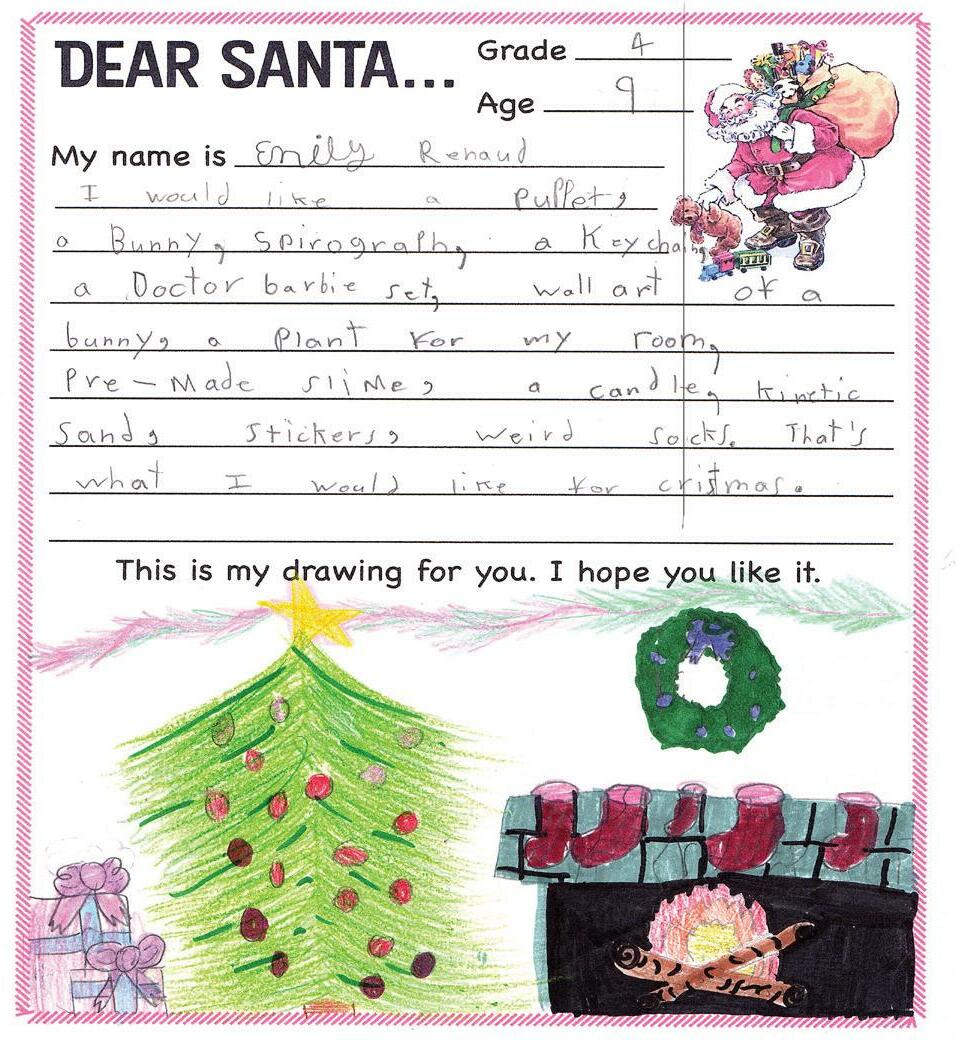 DEAR SANTA...
Grade 4
Age 9
My name is Emily Renaud
I would like a puppet,
a Bunny, Spirograph, a Keychain,
a Doctor barbie set, wall art of a
bunny, a Plant for my room,
Pre-Made slime, a candle, kinetic
Sand, stickers, weird socks. That's
what I would like for cristmas.
This is my drawing for you. I hope you like it.